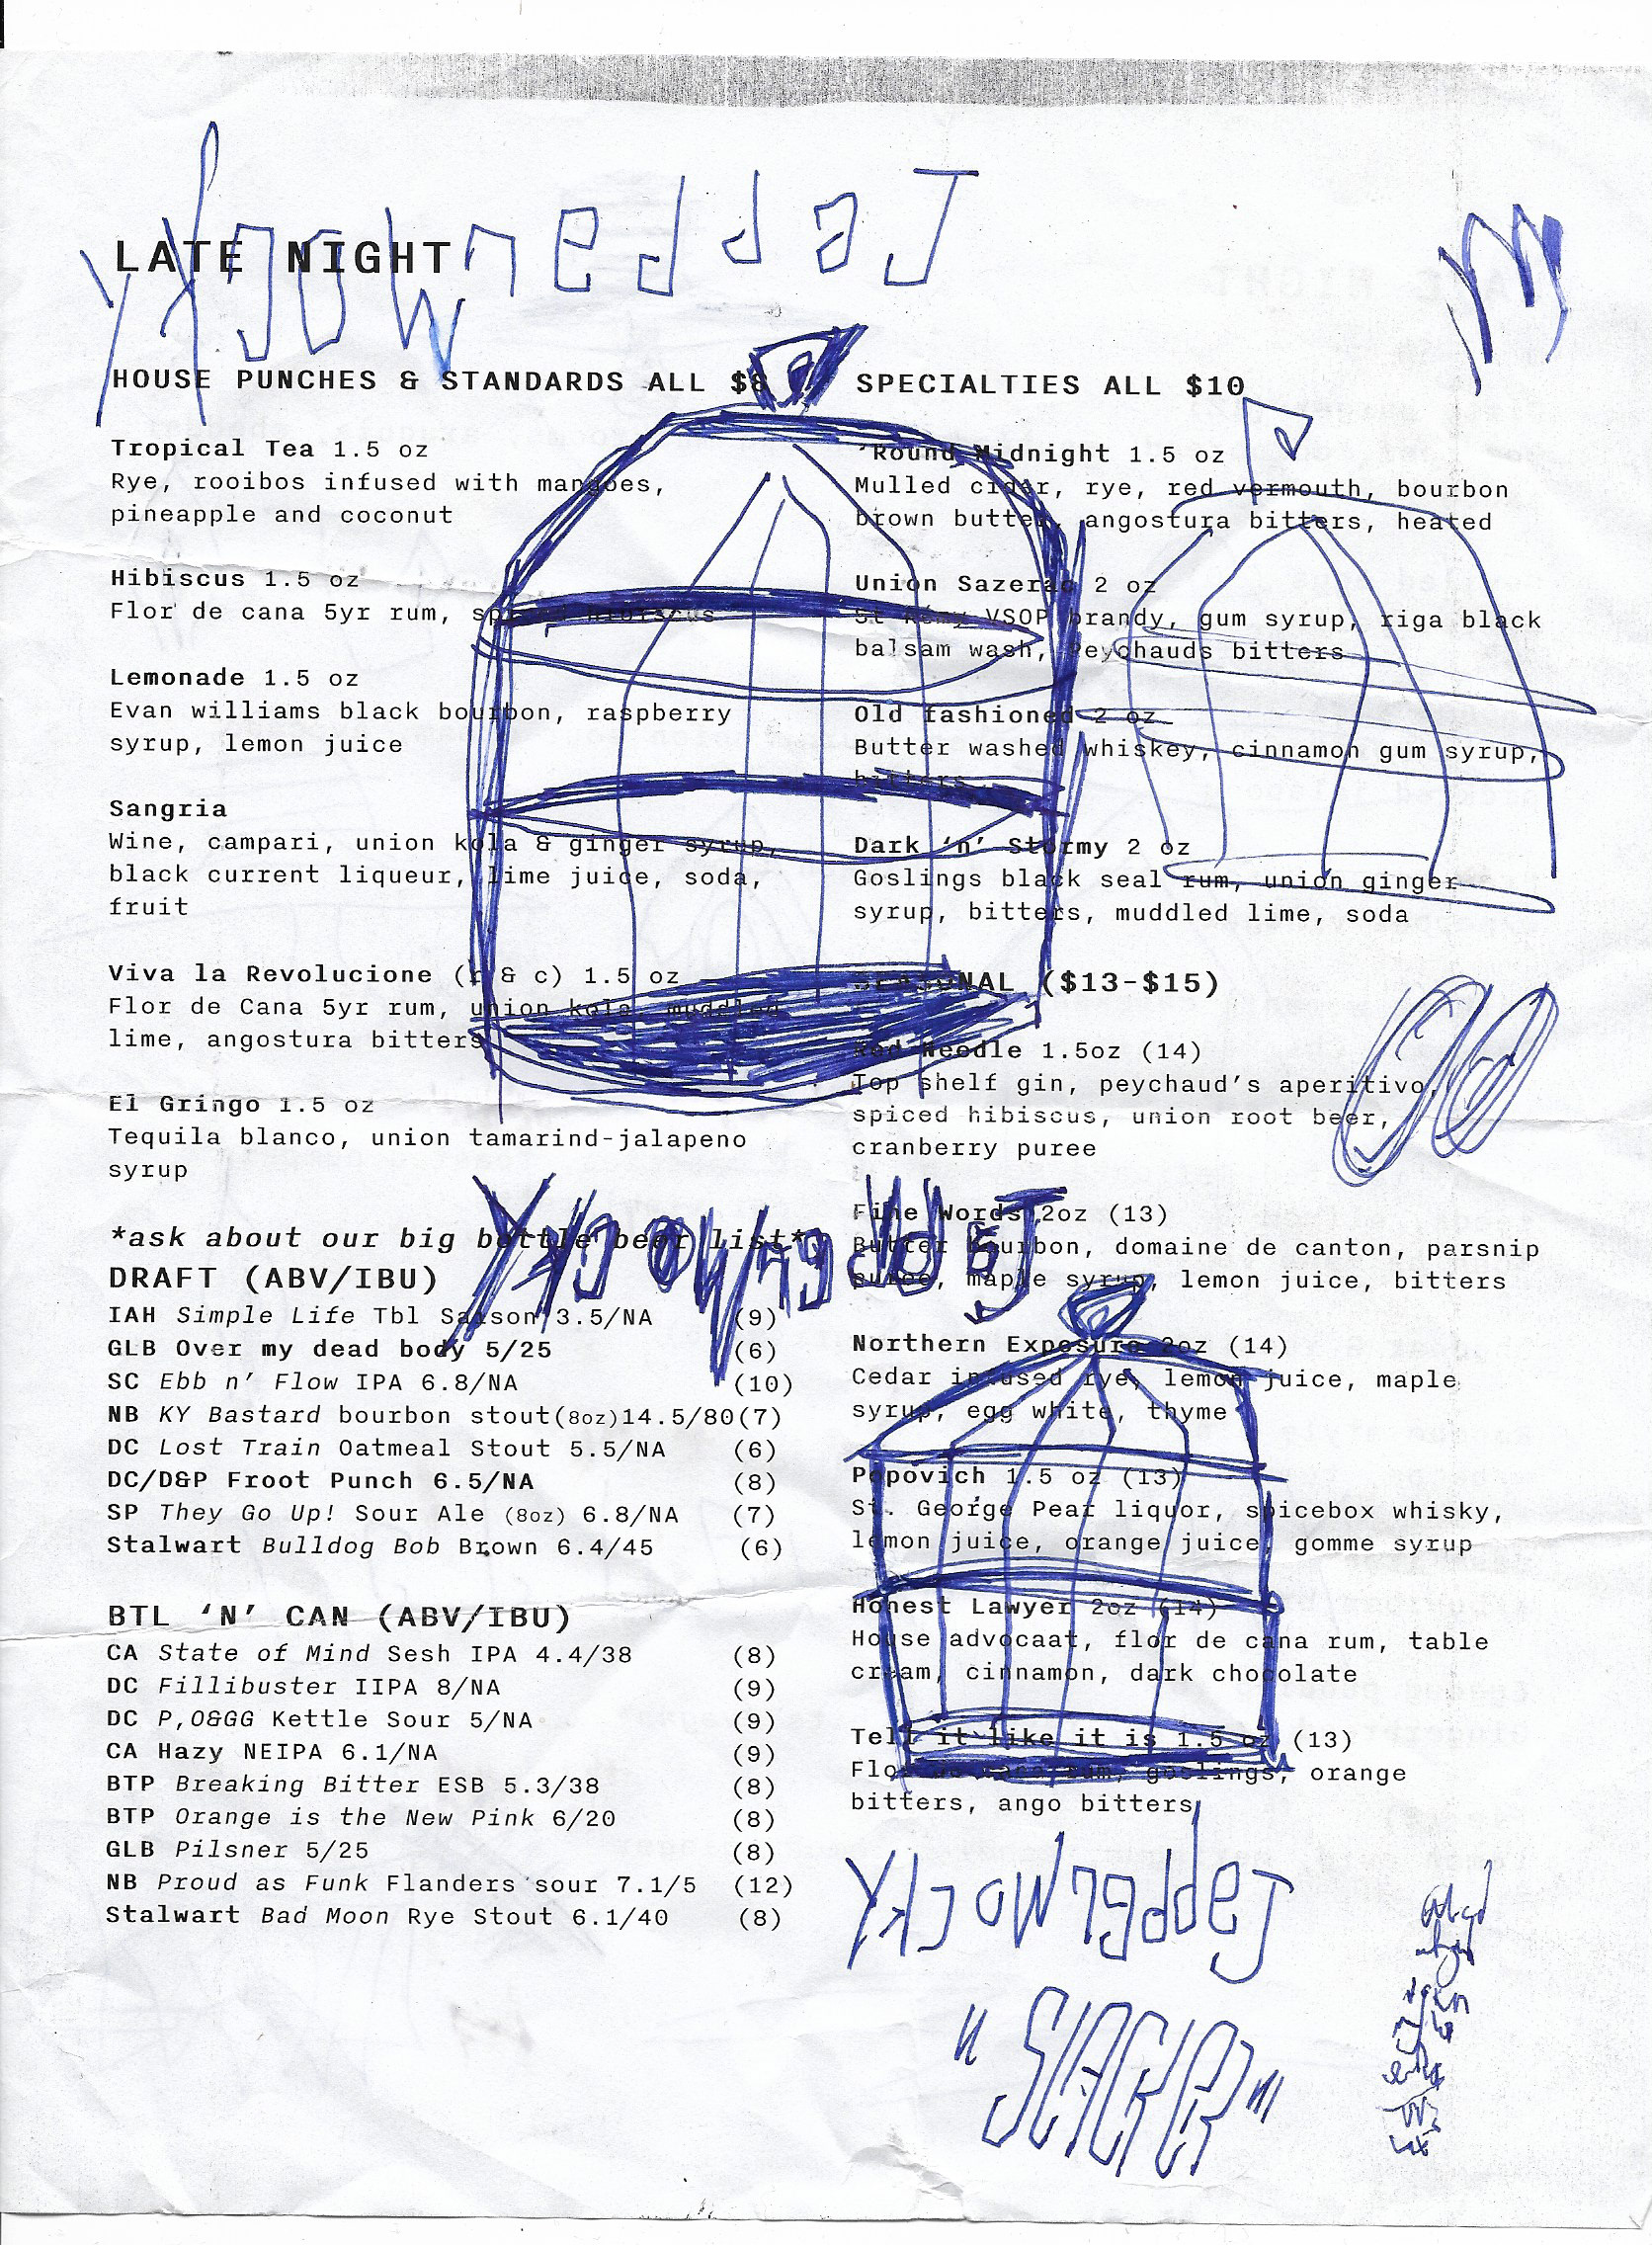 LATE NIGHT
HOUSE PUNCHES & STANDARDS ALL $8
Tropical Tea 1.5 oz
Rye, rooibos infused with mangoes,
pineapple and coconut
Hibiscus 1.5 oz
Flor de cana 5yr rum, spiced hibiscus
Lemonade 1.5 oz
Evan williams black bourbon, raspberry
syrup, lemon juice
Sangria
Wine, campari, union kola & ginger syrup,
black current liqueur, lime juice, soda,
fruit
Viva la Revolucione (r & c) 1.5 oz
Flor de Cana 5yr rum, union kola, muddled
lime, angostura bitters
El Gringo 1.5 oz
Tequila blanco, union tamarind-jalapeno
syrup
*ask about our big bottle beer list*
DRAFT (ABV/IBU)
IAH Simple Life Tbl Saison 3.5/NA (9)
GLB Over my dead body 5/25 (6)
SC Ebb n’ Flow IPA 6.8/NA (10)
NB KY Bastard bourbon stout(8oz)14.5/80(7)
DC Lost Train Oatmeal Stout 5.5/NA (6)
DC/D&P Froot Punch 6.5/NA (8)
SP They Go Up! Sour Ale (8oz) 6.8/NA (7)
Stalwart Bulldog Bob Brown 6.4/45 (6)
BTL ‘N’ CAN (ABV/IBU)
CA State of Mind Sesh IPA 4.4/38 (8)
DC Fillibuster IIPA 8/NA (9)
DC P,O&GG Kettle Sour 5/NA (9)
CA Hazy NEIPA 6.1/NA (9)
BTP Breaking Bitter ESB 5.3/38 (8)
BTP Orange is the New Pink 6/20 (8)
GLB Pilsner 5/25 (8)
NB Proud as Funk Flanders sour 7.1/5 (12)
Stalwart Bad Moon Rye Stout 6.1/40 (8)
SPECIALTIES ALL $10
‘Round Midnight 1.5 oz
Mulled cider, rye, red vermouth, bourbon
brown butter, angostura bitters, heated
Union Sazerac 2 oz
St Rémy VSOP brandy, gum syrup, riga black
balsam wash, Peychauds bitters
Old fashioned 2 oz
Butter washed whiskey, cinnamon gum syrup,
bitters
Dark ‘n’ Stormy 2 oz
Goslings black seal rum, union ginger
syrup, bitters, muddled lime, soda
SEASONAL ($13-$15)
Red Needle 1.5oz (14)
Top shelf gin, peychaud’s aperitivo,
spiced hibiscus, union root beer,
cranberry puree
Fine Words 2oz (13)
Butter bourbon, domaine de canton, parsnip
puree, maple syrup, lemon juice, bitters
Northern Exposure 2oz (14)
Cedar infused rye, lemon juice, maple
syrup, egg white, thyme
Popovich 1.5 oz (13)
St. George Pear liquor, spicebox whisky,
lemon juice, orange juice, gomme syrup
Honest Lawyer 2oz (14)
House advocaat, flor de cana rum, table
cream, cinnamon, dark chocolate
Tell it like it is 1.5 oz (13)
Flor de cana rum, goslings, orange
bitters, ango bitters